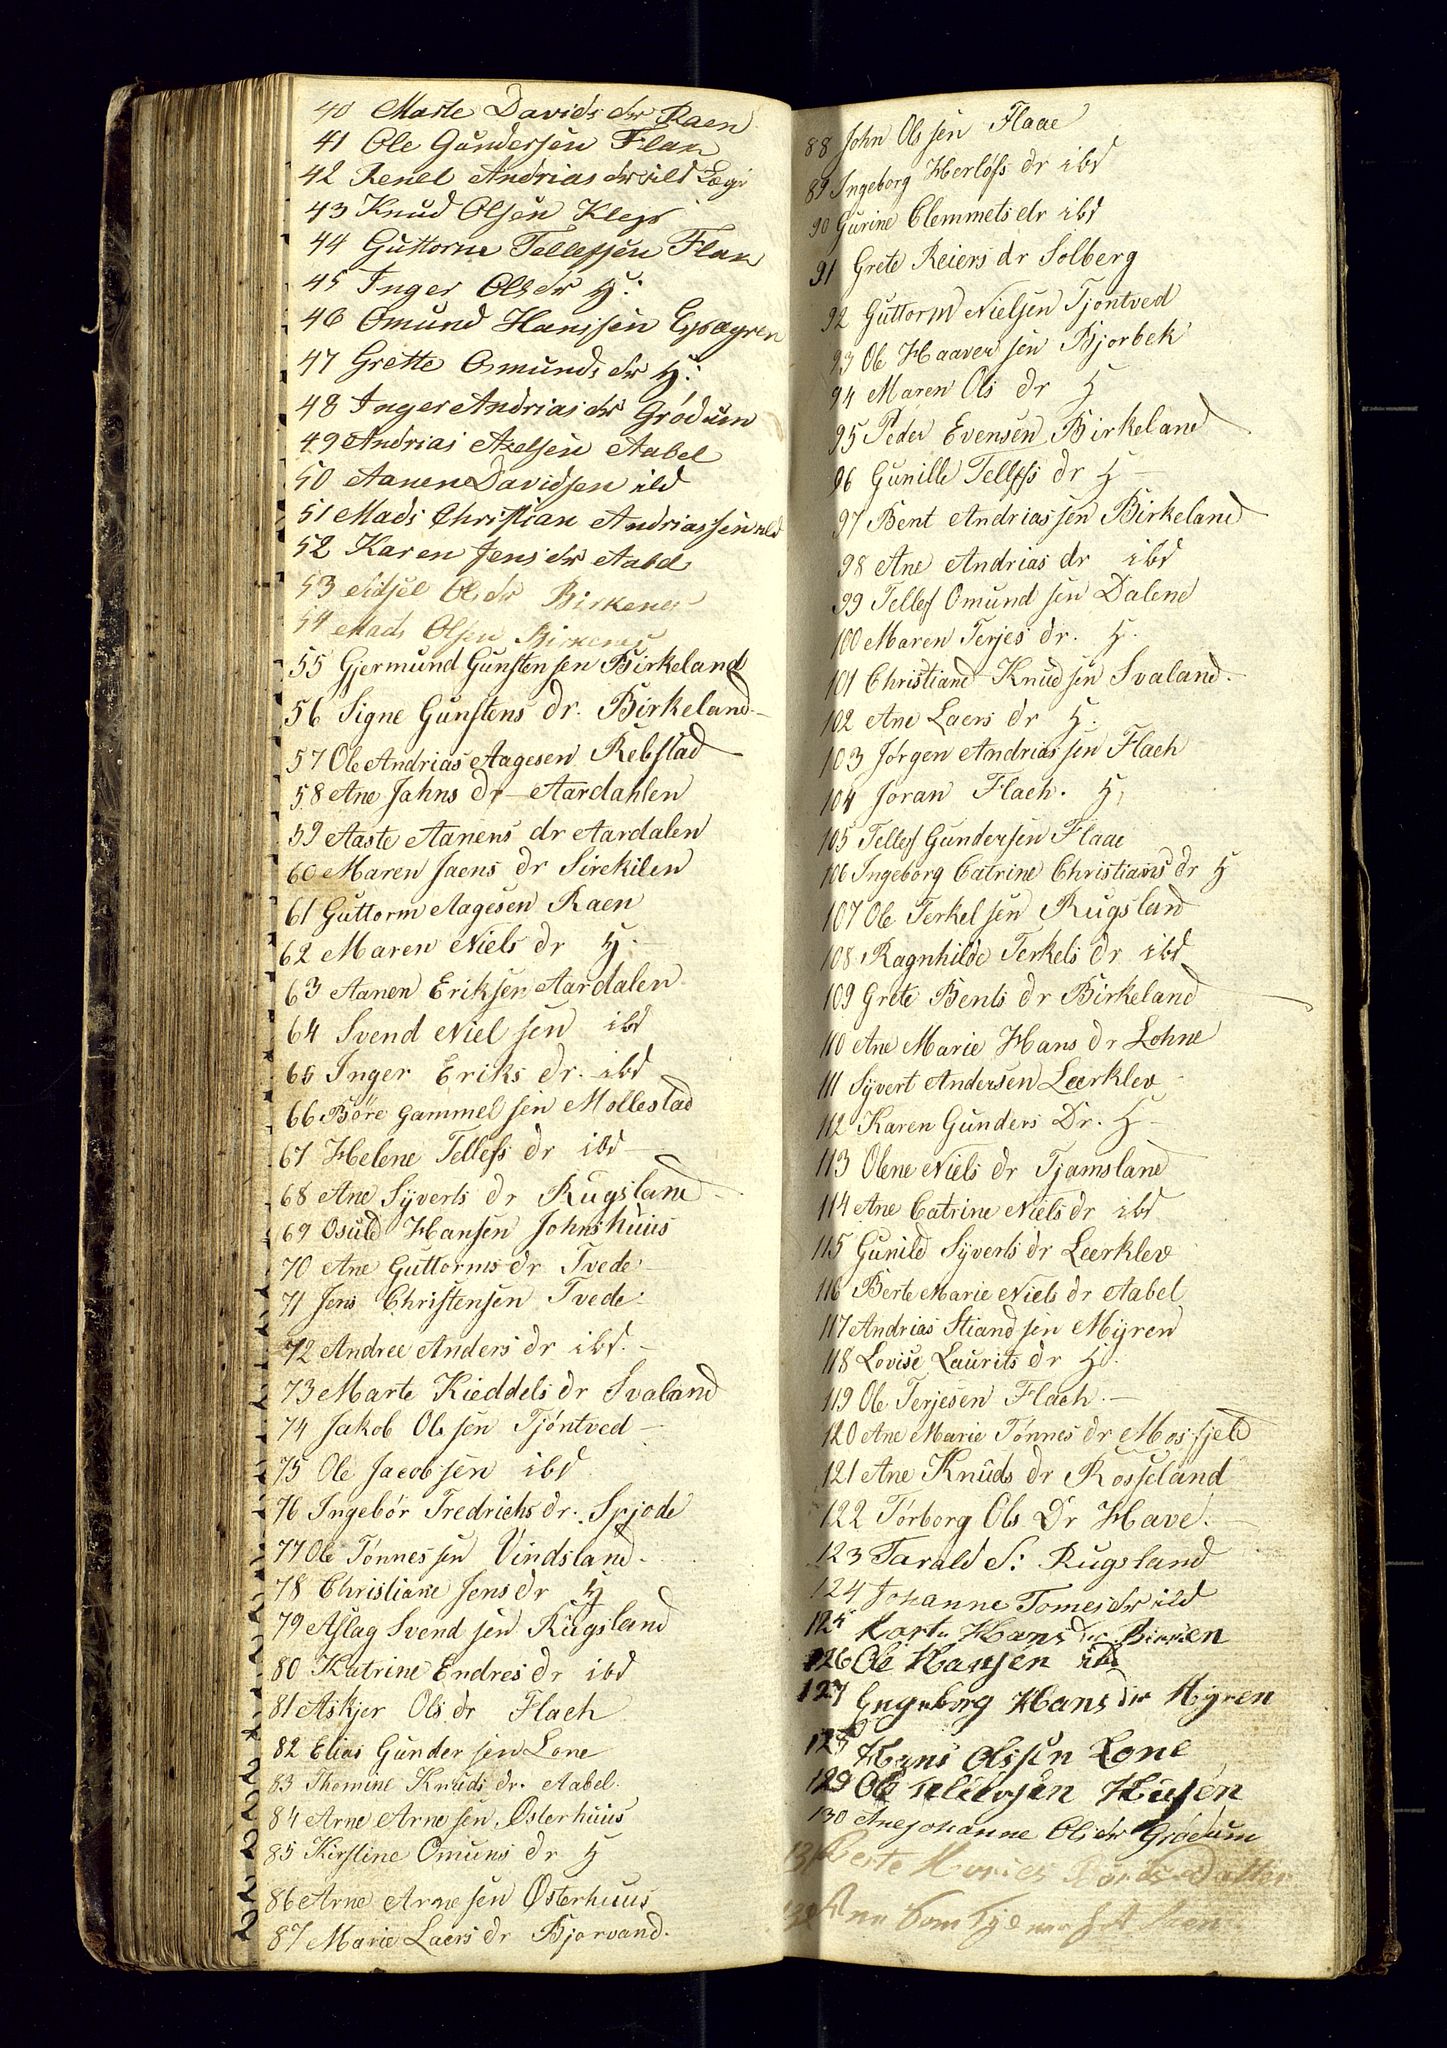 40 Marte Davids dr Raen
41 Ole Gundersen Flak
42 Renel Andrias dr
43 Knud Olsen Klep
44 Guttorm Tellefsen Flak
45 Inger Ols dr H:
46 Omund Hanssen Espegren
47 Grette Omunds dr H:
48 Inger Andrias dr Grödum
49 Andrias Axelsen Aabel
50 Aanen Davidsen ibd
51 Mads Christian Andriassen ibd
52 Karen Jens dr Aabel
53 Sidsel Ols dr Birkenes
54 Mads Olsen Birkenes
55 Gjermund Gunstensen Birkeland
56 Signe Gunstens dr. Birkeland
57 Ole Andrias Aagesen Rebstad
58 Ane Jahns dr Aardahlen
59 Aaste Aanens dr Aardalen
60 Maren Jaens dr Sirekilen
61 Guttorm Aagesen Raen
62 Maren Niels dr H.
63 Aanen Eriksen Aardalen
64 Svend Nielsen ibd
65 Inger Eriks dr. ibd
66 Böre Gammelsen Mollestad
67 Helene Tellefs dr ibd
68 Ane Syverts dr Rugsland
69 Osuld Hansen Johnshuus
70 Ane Guttorms dr Tvede
71 Jens Christensen Tvede
72 Andree Anders dr ibd.
73 Marte Kieddels dr Svaland
74 Jakob Olssen Tjöntved
75 Ole Jacobsen ibd
76 Ingebör Fredrichs dr. Spjode
77 Ole Tönnessen Vindsland
78 Christiane Jens dr H
79 Aslag Svendsen Rugsland
80 Katrine Endres dr ibd
81 Askjer Ols dr Flach
82 Elias Gundersen Lone
83 Thomine Knuds dr. Aabel.
84 Arne Arnesen Østerhuus
85 Kirstine Omuns dr H
86 Arne Arnesen Østerhuus
87 Marie Laers dr Bjorvand.
88 John Olssen Flaae
89 Ingeborg Herlofs dr ibd
90 Gurine Clemmets dr ibd
91 Grete Reiers dr Solberg
92 Guttorm Nielsen Tjöntved
93 Ole Haaversen Bjorbek
94 Maren Ols dr H
95 Peder Evensen Birkeland
96 Gunille Tellefs dr H
97 Bent Andriassen Birkeland
98 Ane Andrias dr ibd
99 Tellef Omundsen Dalene
100 Maren Terjes dr. H.
101 Christiane Knudsen Svaland.
102 Ane Laers dr H.
103 Jörgen Andriassen Flach
104 Joran Flach. H.
105 Tellef Gundersen Flaae
106 Ingeborg Catrine Christians dr H
107 Ole Terkelsen Rugsland
108 Ragnhilde Terkels dr ibd
109 Grete Bents dr Birkeland
110 Ane Marie Hans dr Lohne
111 Syvert Andersen Lærklev
112 Karen Gunders Dr. H
113 Olene Niels dr Tjamsland
114 Ane Catrine Niels dr ibd
115 Gunild Syverts dr Lærklev
116 Berte Marie Niels dr Aabel
117 Andrias Stiandsen Myren
118 Lovise Laurits dr H.
119 Ole Terjesen Flach.
120 Ane Marie Tönnes dr Mosfjeld
121 Ane Knuds dr Rosseland
122 Törborg Ols Dr Have.
123 Tarald S: Rugsland
124 Johanne Tomes dr ibd
125 Karte Hans dr
126 Ole Hansen ibd
127 Engeborg Hans dr Myren
128 Hans Olssen Lone
129 Ole Tellevsen Husön
130 Ane Johanne Ols dr Grödum
131 Berte Datter
132